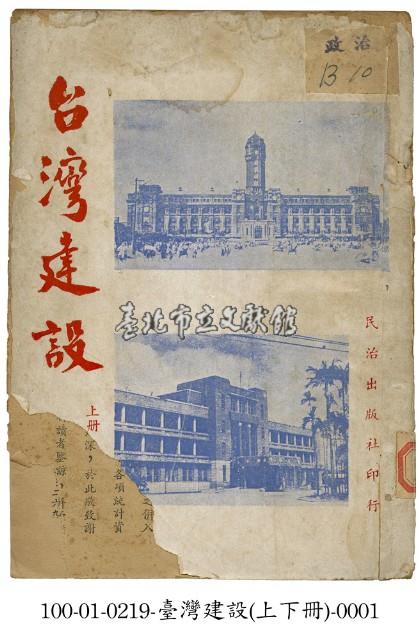 政治
B 10
台灣建設
臺北市立文獻館
上冊
民治出版社印行
深，於此處致謝
各項統計資
入
100-01-0219-臺灣建設(上下冊)-0001